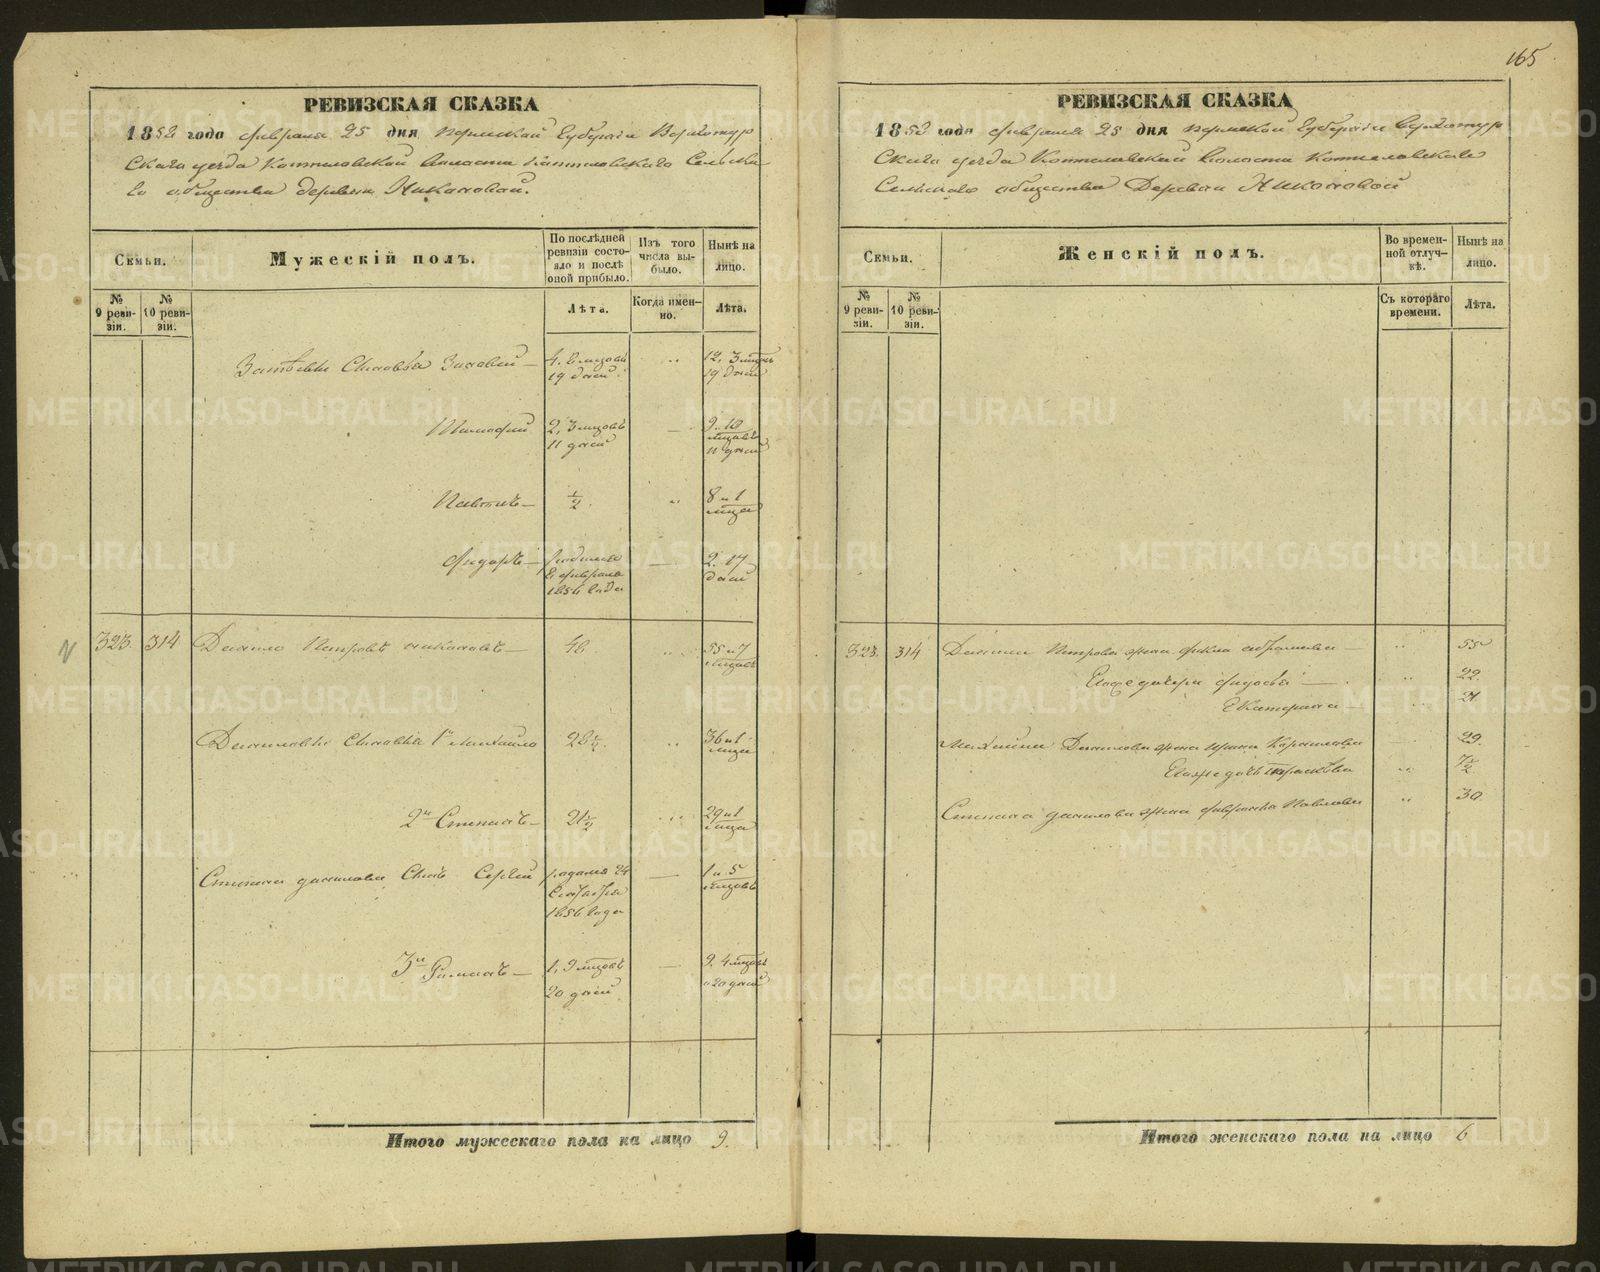 165
РЕВИЗСКАЯ СКАЗКА
1858 года февраля 25 дня Пермской Губернiи Верхотур
скаго уезда Коптеловской Волости Коптеловскаго Сельска
го общества деревни Никоновой.
Семьи.
Мужескiй полъ.
По послѣдней ревизiи состояло и послѣ оной прибыло.
Изъ того числа выбыло.
Нынѣ на лицо.
№ 9 ревизiи.
№ 10 ревизiи.
Лѣта.
Когда именно.
Лѣта.
Сыновья Зиновей 4. 2 мцовъ 19 дней " 12, 3 мцовъ 19 дней
Тимофей 2, 3 мцовъ 11 дней — 9. 10 мцовъ 11 дней
Павелъ ½. " 8 и 1 мца
Федоръ родился 8 февраля 1856 года — 2. 17 дней
323. 314 Данило Петровъ Никоновъ 48. " 55 и 7 мцовъ
Даниловы Сыновья 1й Михайло 28 ½. " 36 и 1 мца
2й Степанъ 21 ½ " 29 и 1 мца
Степана Данилова Сынъ Сергей родился 24 Сентября 1856 года — 1 и 5 мцовъ
3й Романъ 1, 9 мцовъ 20 дней — 9. 4 мцовъ 20 дней
Итого мужескаго пола на лицо 9.
РЕВИЗСКАЯ СКАЗКА
1858 года февраля 25 дня Пермской Губернiи Верхотур
скаго уезда Коптеловской Волости Коптеловскаго
Сельскаго общества Деревни Никоновой
Семьи.
Женскiй полъ.
Во временной отлучкѣ.
Нынѣ на лицо.
№ 9 ревизiи.
№ 10 ревизiи.
Съ котораго времени.
Лѣта.
323. 314 Данила Петрова жена Фекла Абрамова " 55
Ево же дочери Федосья " 22.
Екатерина " 21
Михайла Данилова жена Ирина 29.
Ево же дочь Парасковья " 7½
Степана Данилова жена Павлова " 30
Итого женскаго пола на лицо 6
METRIKI.GASO-URAL.RU